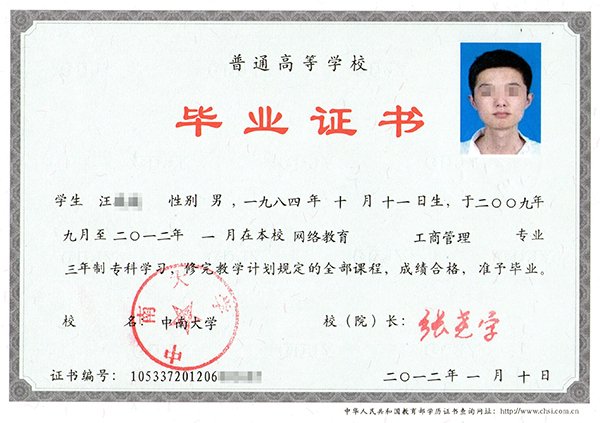 普通高等学校
毕业证书
学生 汪 性别 男，一九八四年 十 月 十一日生，于二〇〇九年
九月至二〇一二年 一月在本校 网络教育 工商管理 专业
三年制专科学习，修完教学计划规定的全部课程，成绩合格，准予毕业。
校 名：中南大学 校（院）长：张尧学
中南大学
证书编号：105337201206 二〇一二年 一 月 十 日
中华人民共和国教育部学历证书查询网址：http://www.chsi.com.cn